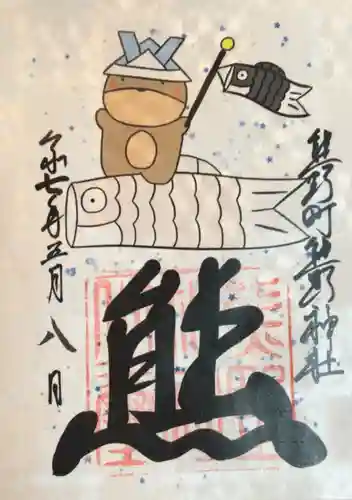 熊野町熊野神社
熊
令和七年五月八日